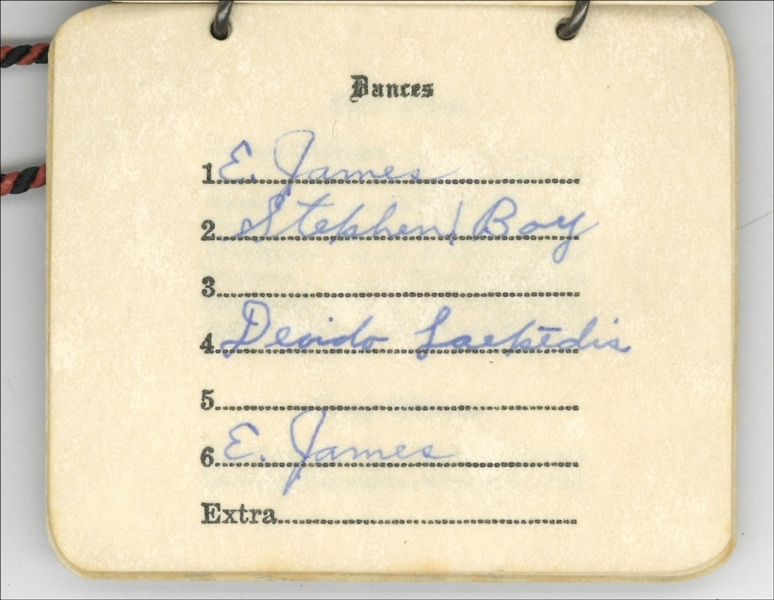 Dances
1 E. James
2 Stephen Boy
3
4
5
6 E. James
Extra